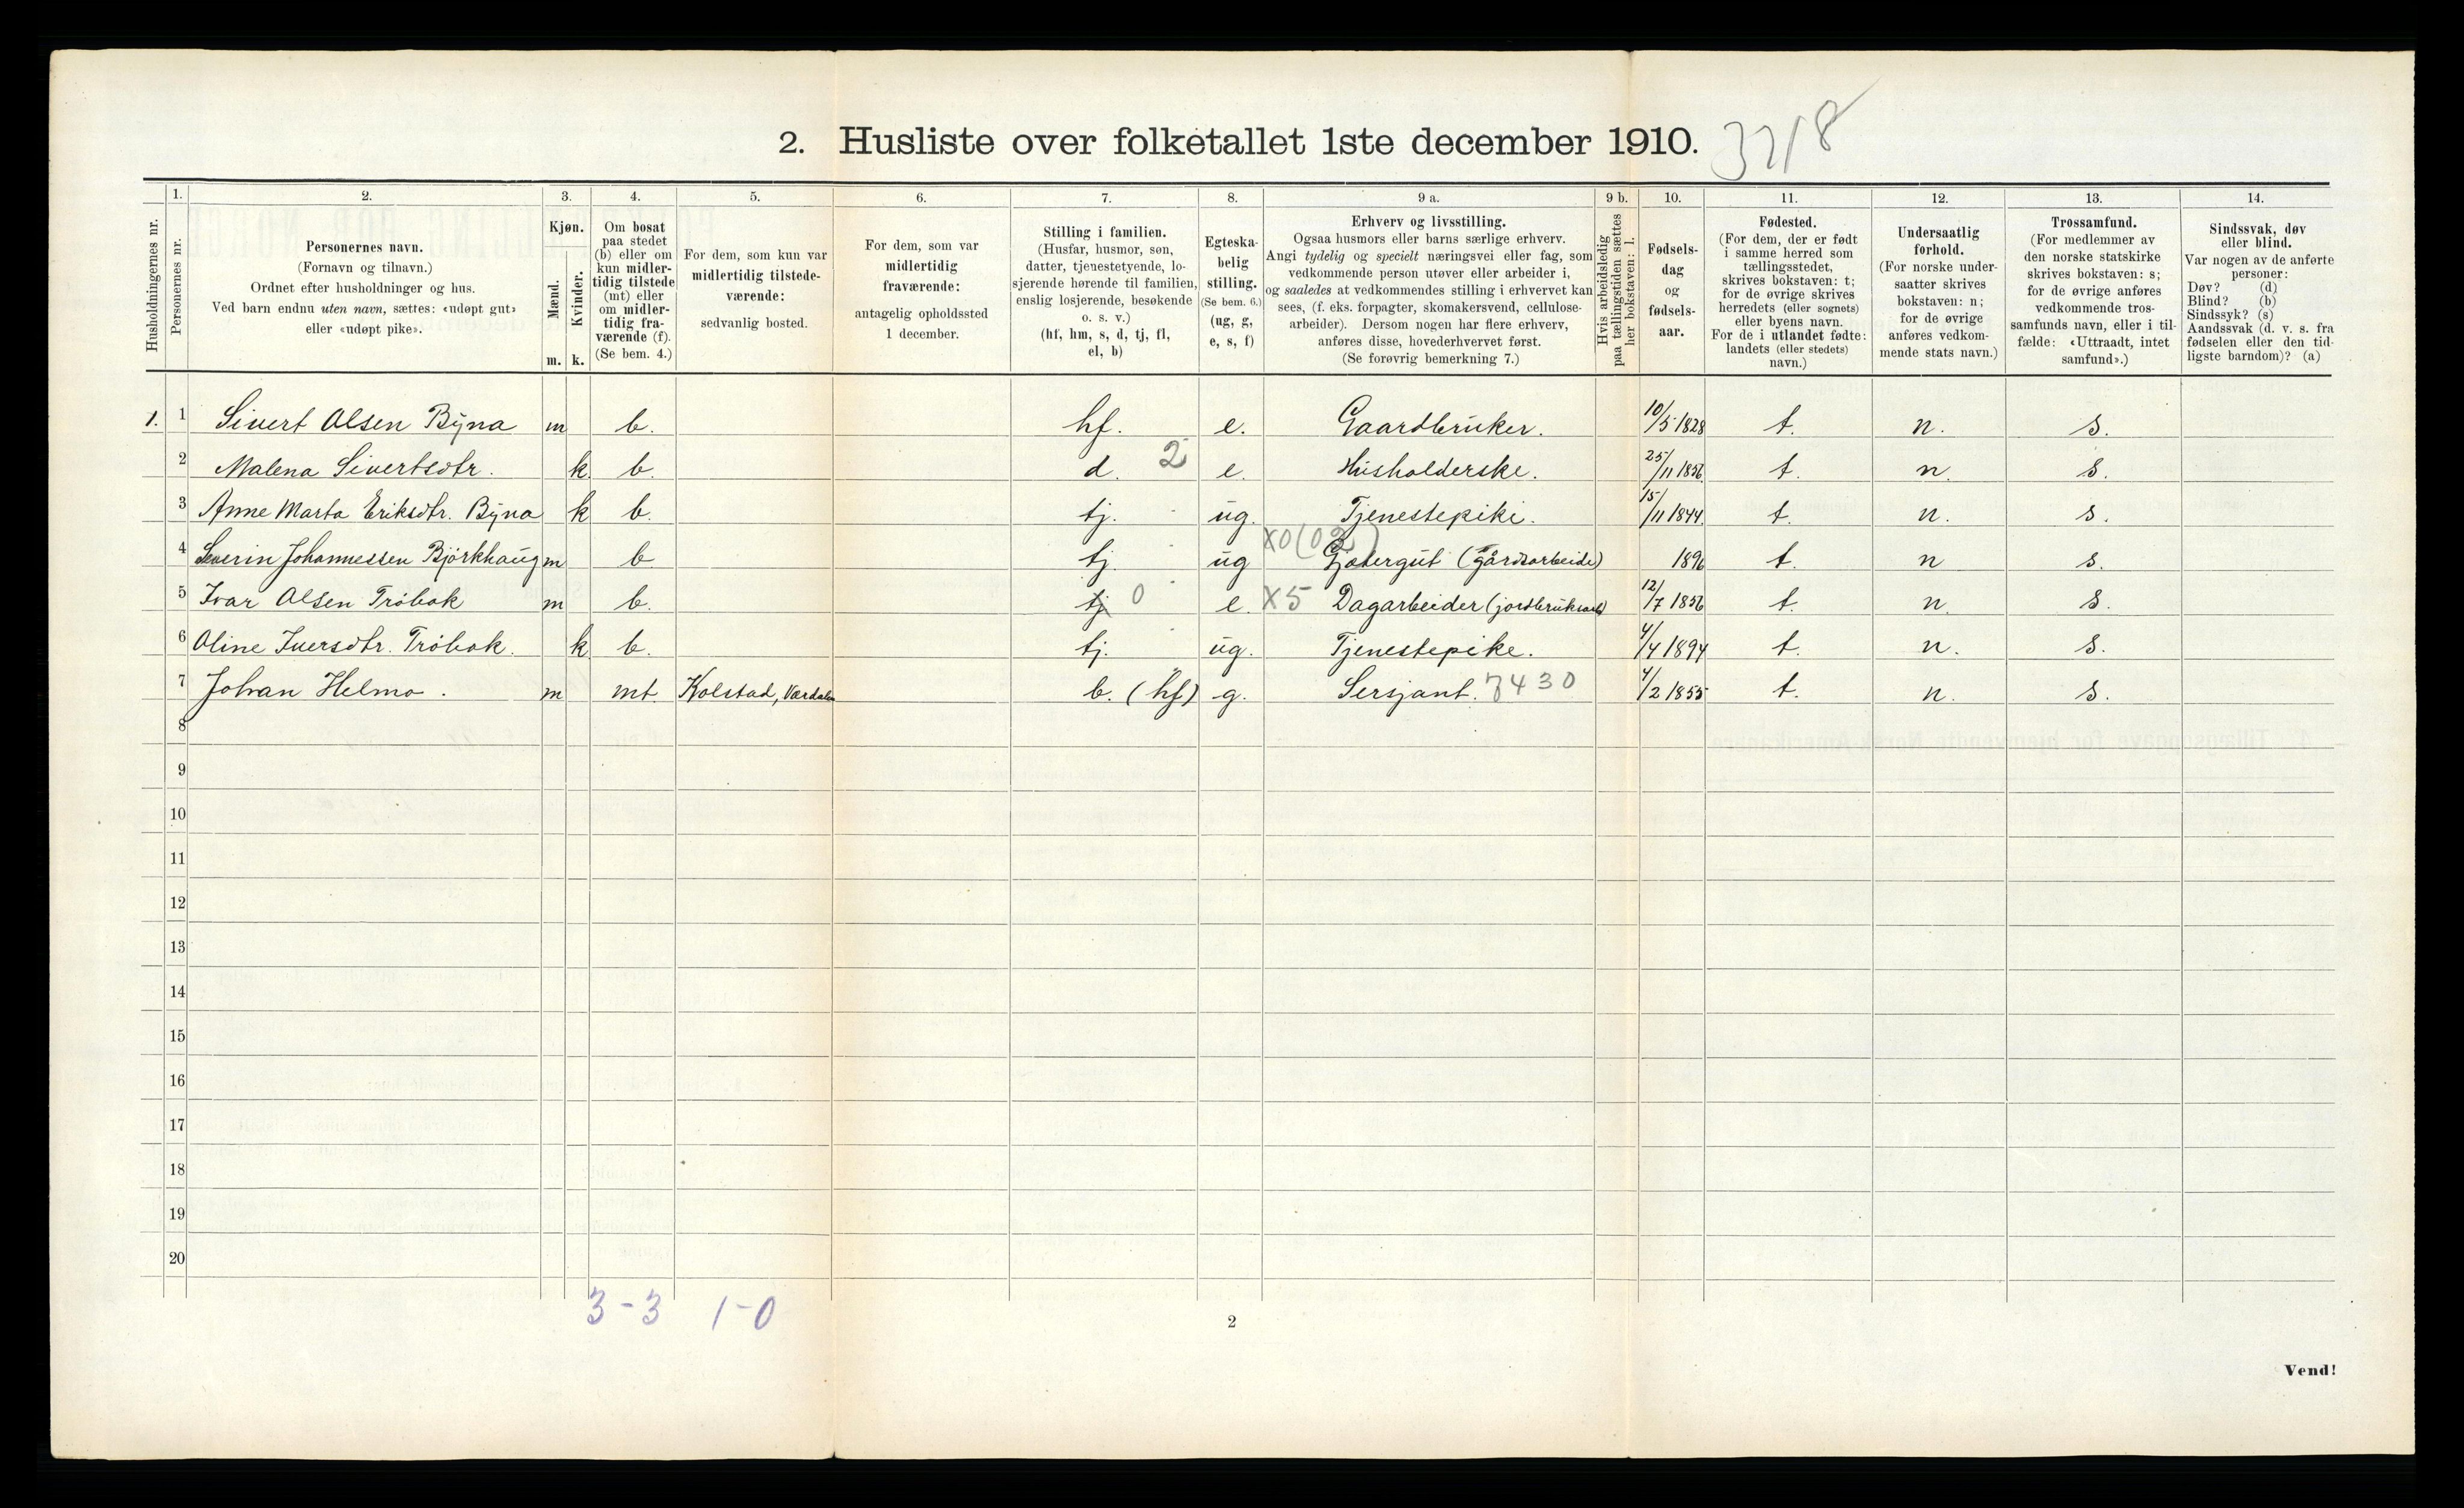 2. Husliste over folketallet 1ste december 1910. 3718
1. 2. 3. 4. 5. 6. 7. 8. 9 a. 9 b. 10. 11. 12. 13. 14.
Husholdningernes nr.
Personernes nr.
Personernes navn.
(Fornavn og tilnavn.)
Ordnet efter husholdninger og hus.
Ved barn endnu uten navn, sættes: «udøpt gut»
eller «udøpt pike».
Kjøn.
Mænd.
Kvinder.
m. k.
Om bosat
paa stedet
(b) eller om
kun midler-
tidig tilstede
(mt) eller
om midler-
tidig fra-
værende (f).
(Se bem. 4.)
For dem, som kun var
midlertidig tilstede-
værende:
sedvanlig bosted.
For dem, som var
midlertidig
fraværende:
antagelig opholdssted
1 december.
Stilling i familien.
(Husfar, husmor, søn,
datter, tjenestetyende, lo-
sjerende hørende til familien,
enslig losjerende, besøkende
o. s. v.)
(hf, hm, s, d, tj, fl,
el, b)
Egteska-
belig
stilling.
(Se bem. 6.)
(ug, g,
e, s, f)
Erhverv og livsstilling.
Ogsaa husmors eller barns særlige erhverv.
Angi tydelig og specielt næringsvei eller fag, som
vedkommende person utøver eller arbeider i,
og saaledes at vedkommendes stilling i erhvervet kan
sees, (f. eks. forpagter, skomakersvend, cellulose-
arbeider). Dersom nogen har flere erhverv,
anføres disse, hovederhvervet først.
(Se forøvrig bemerkning 7.)
Hvis arbeidsledig
paa tællingstiden sættes
her bokstaven: l.
Fødsels-
dag
og
fødsels-
aar.
Fødested.
(For dem, der er født
i samme herred som
tællingsstedet,
skrives bokstaven: t;
for de øvrige skrives
herredets (eller sognets)
eller byens navn.
For de i utlandet fødte:
landets (eller stedets)
navn.)
Undersaatlig
forhold.
(For norske under-
saatter skrives
bokstaven: n;
for de øvrige
anføres vedkom-
mende stats navn.)
Trossamfund.
(For medlemmer av
den norske statskirke
skrives bokstaven: s;
for de øvrige anføres
vedkommende tros-
samfunds navn, eller i til-
fælde: «Uttraadt, intet
samfund».)
Sindssvak, døv
eller blind.
Var nogen av de anførte
personer:
Døv? (d)
Blind? (b)
Sindssyk? (s)
Aandssvak (d. v. s. fra
fødselen eller den tid-
ligste barndom)? (a)
1. 1 Sivert Olsen Byna m b. hf. e. Gaardbruker. 10/5 1828 t. n. s.
2 Malena Sivertsdtr. k. b. d. 2 e. Husholderske. 25/11 1856. t. n. s.
3 Anne Marta Eriksdtr. Byna k b. tj. ug. Tjenestepike. 15/11 1844. t. n. s.
X0(02)
4 Severin Johannessen Bjørkhaug m b tj. ug Gjætergut (gårdsarbeide) 1896 t. n s.
5 Ivar Olsen Trøbak m b. tj 0 e. X5 Dagarbeider (jordbruksarb) 12/7 1856 t. n. s.
6 Oline Iversdtr. Trøbak. k. b. tj. ug. Tjenestepike. 4/4 1894 t. n. s.
7 Johan Helmo. m mt. Kolstad, Værdalen b. (hf) g. Sersjant. 7430 4/2 1855 t. n. s.
8
9
10
11
12
13
14
15
16
17
18
19
20
3-3 1-0
2
Vend!